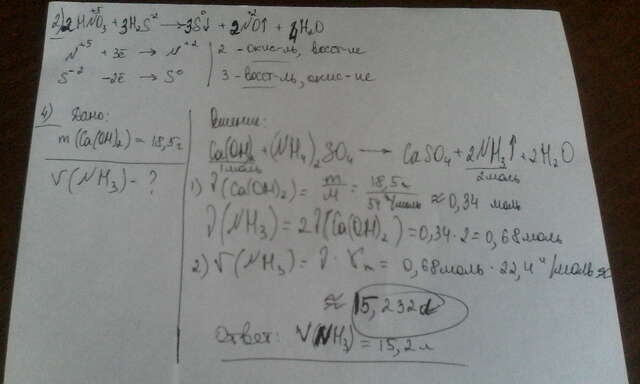 2) 2HN⁺⁵O₃ + 3H₂S⁻² → 3S⁰↓ + 2N⁺²O↑ + 4H₂O
N⁺⁵ + 3ē → N⁺² | 2 - окис-ль, восст-ие
S⁻² - 2ē → S⁰ | 3 - восст-ль, окис-ие
4) Дано:
m(Ca(OH)₂) = 18,5г
V(NH₃) - ?
Решение:
Ca(OH)₂ + (NH₄)₂SO₄ → CaSO₄ + 2NH₃↑ + 2H₂O
1моль 2моль
1) ν(Ca(OH)₂) = m/M = 18,5г/54 г/моль ≈ 0,34 моль
ν(NH₃) = 2ν(Ca(OH)₂) = 0,34 · 2 = 0,68моль
2) V(NH₃) = ν · Vm = 0,68моль · 22,4 л/моль ≈
≈ 15,232л
Ответ: V(NH₃) = 15,2л